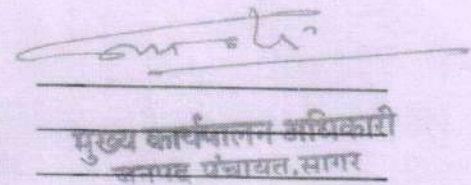 मुख्य कार्यपालन अधिकारी
जनपद पंचायत, सागर